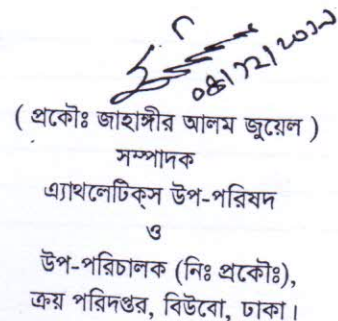 ( প্রকৌঃ জাহাঙ্গীর আলম জুয়েল )
সম্পাদক
এ্যাথলেটিক্স উপ-পরিষদ
ও
উপ-পরিচালক (নিঃ প্রকৌঃ),
ক্রয় পরিদপ্তর, বিউবো, ঢাকা।